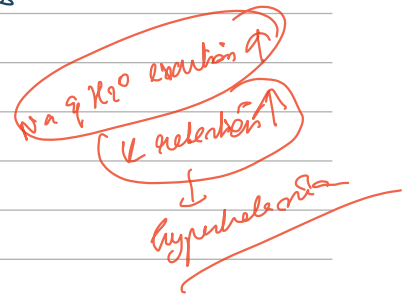 Na & H2O excretion ↑
K retention ↑
↓
hyperkalemia